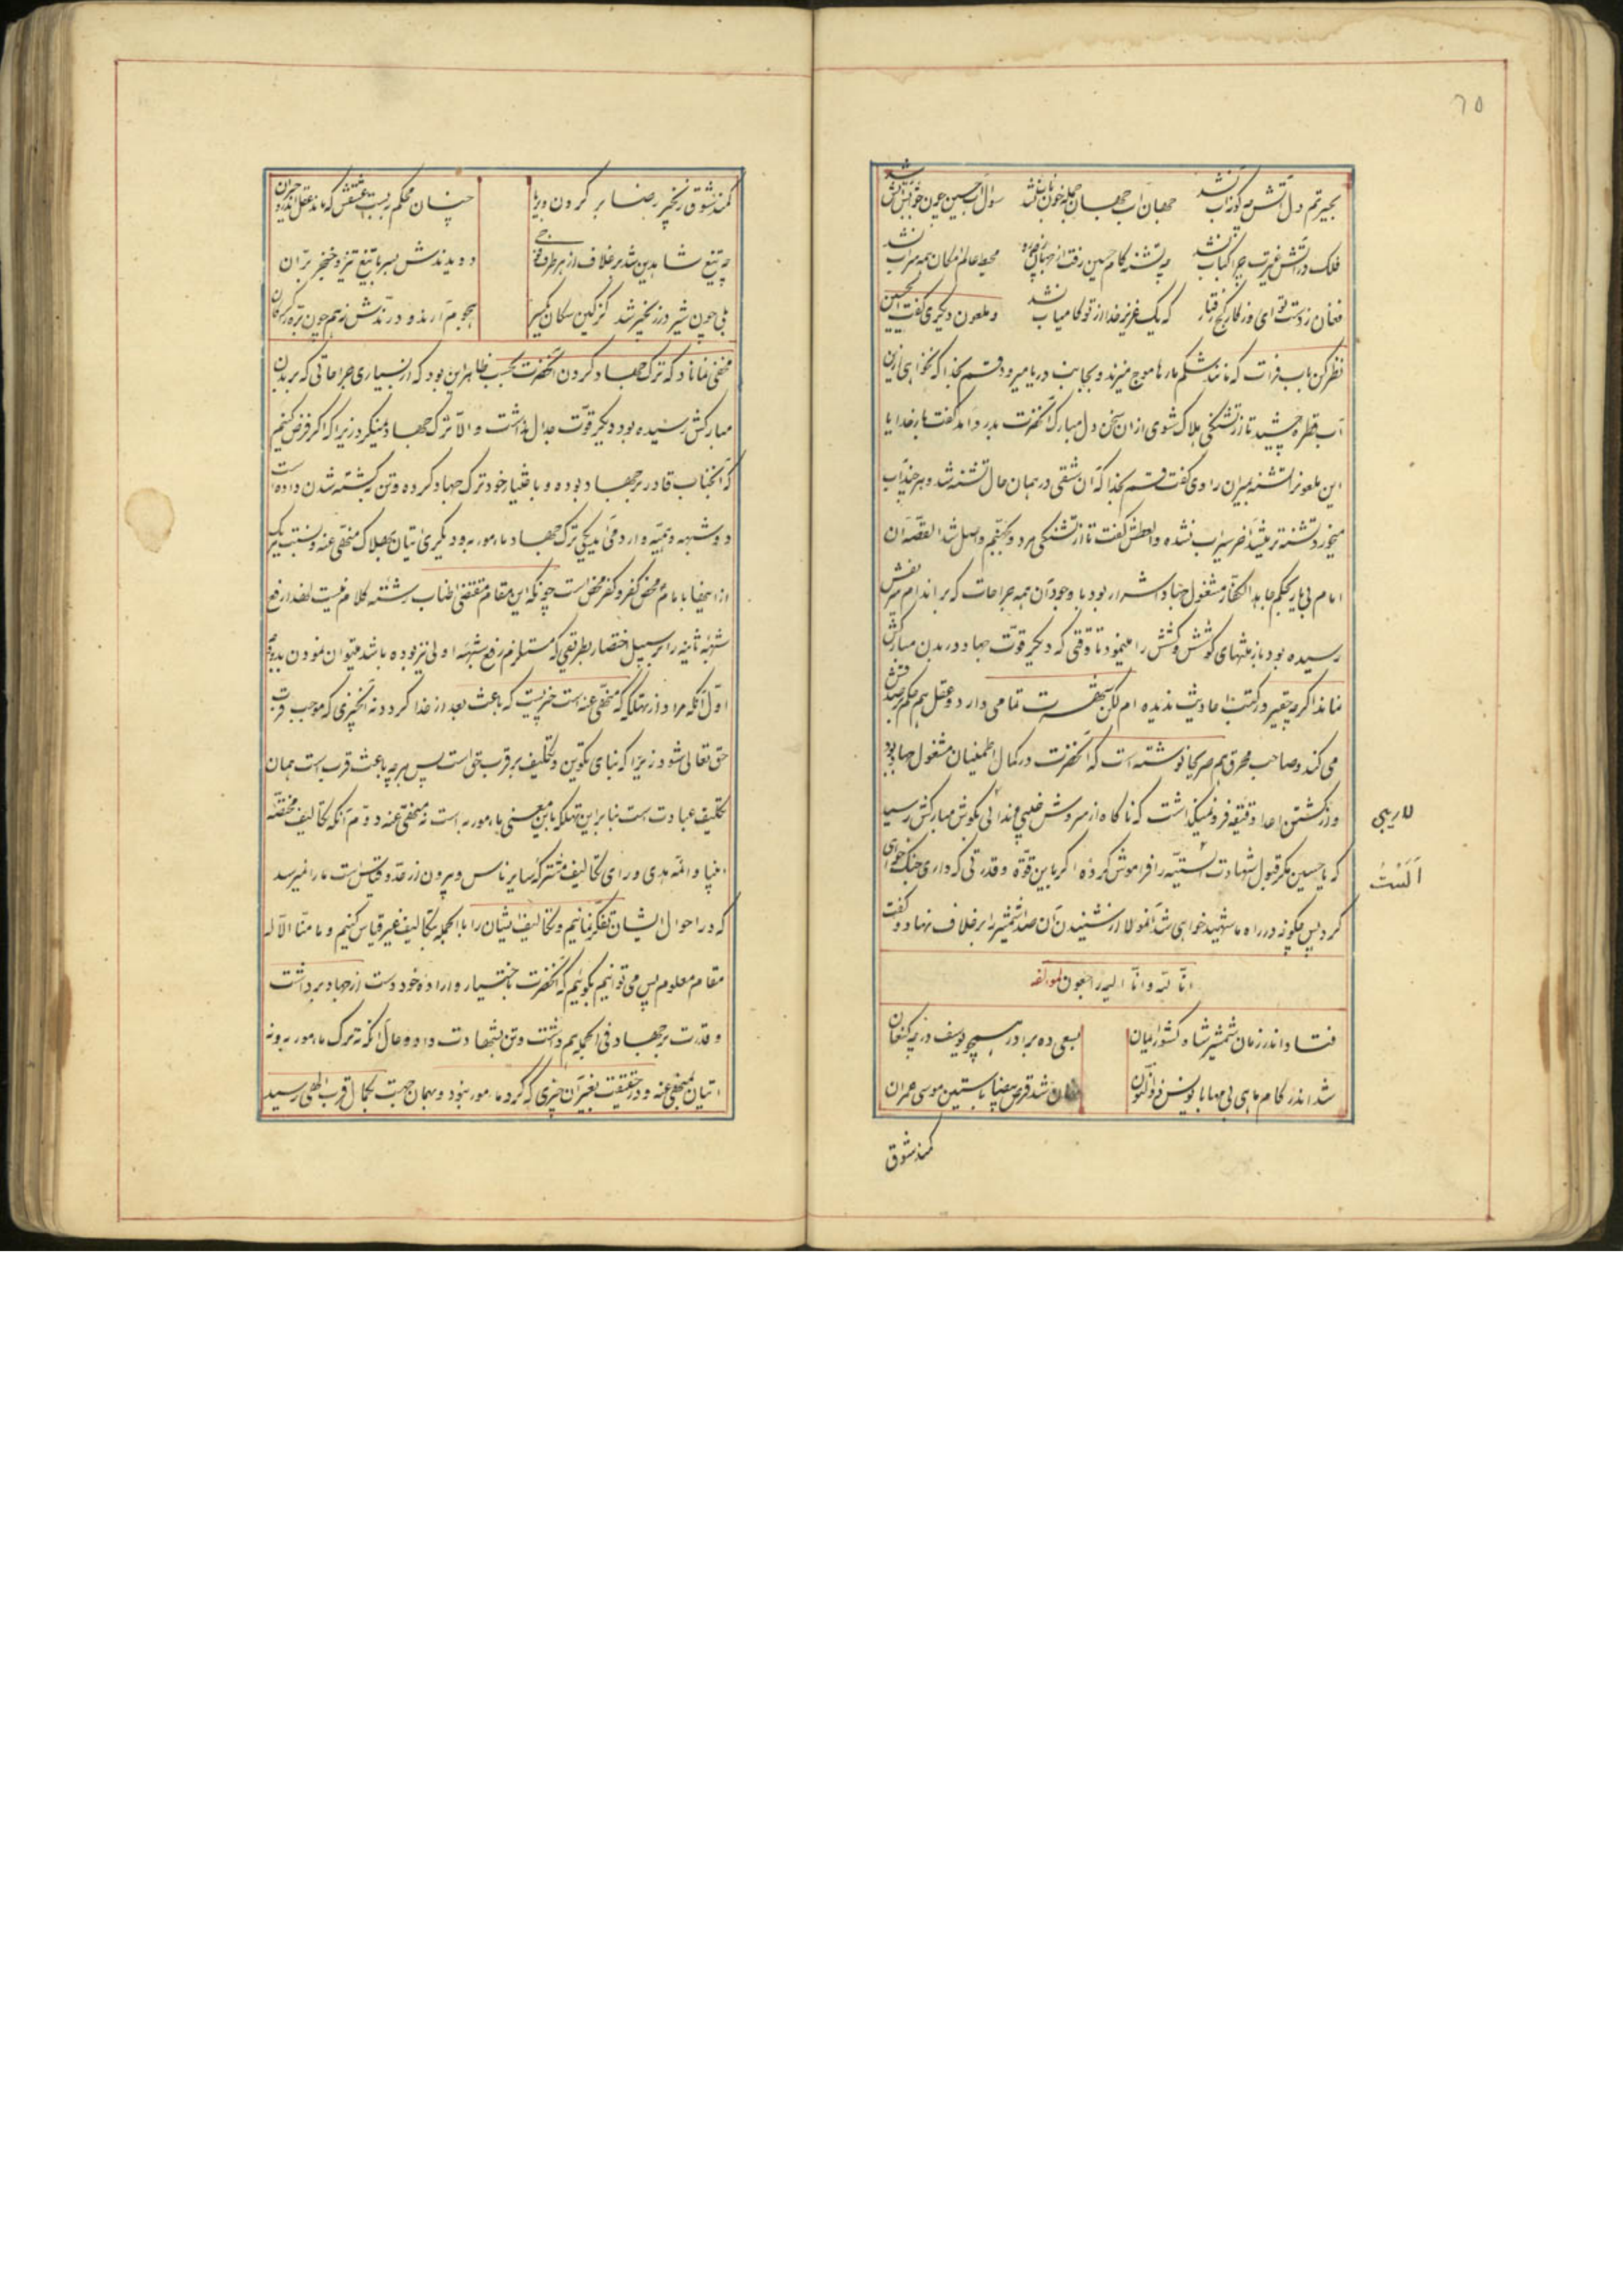 ٦٥
بحیرتم دل آتش چه کوره آب نشد جهان آب جهان جمله خون ناب نشد سؤال آب حسین چون جوابش آتش شد
فلک در آتش غیرت چرا کباب نشد چه تشنه کام حسین رفت از جهان محیط عالم امکان همه سراب نشد
فغان ز دست تو ای روزکار کج رفتار که یک عزیز خدا از تو کامیاب نشد و ملعون دیکری کفت ای حسین
نظر کن بآب فرات که مانند شکم مارها موج میزند و بجانب دریا میرود قسم بخدا که نخواهی ازین
آب قطره چشید تا از تشنکی هلاک شوی از آن سخن دل مبارک آنحضرت بدرد آمد کفت بار خدایا
این ملعونرا تشنه بمیران راوی کفت قسم بخدا که آن شقی در همان حال تشنه شد و هر چند آب
میخورد تشنه تر میشد آخر سیراب نشده والعطش کفت تا از تشنکی مرد و بجهنم واصل شد القصه آن
امام بی یار بحکم جاهد الکفار مشغول جهاد اشرار بود با وجود آن همه جراحات که بر اندام شریفش
رسیده بود باز منتهای کوشش و کشش را مینمود تا وقتی که دیکر قوّت جهاد در بدن مبارکش
نماند اکرچه حقیر در کتب احادیث ندیده ام لکن شهرت تمامی دارد و عقل هم حکم بر صدقش
می کند و صاحب محرق هم صریحا نوشته است که آنحضرت در کمال اطمینان مشغول جهاد بود
و از کشتن اعدا دقیقه فرو نمیکذاشت که ناکاه از سروش غیبی ندائی بکوش مبارکش رسید
لاریبی
که یا حسین مکر قبول شهادت الستیّه را فراموش کرده اکر باین قوّة و قدرتی که داری جنک خواهی
اَلَسْتُ
کرد پس چکونه در راه ما شهید خواهی شد آنمولا از شنیدن آن صدا شمشیر را بر غلاف نهاد و کفت
انّا لله و انّا الیه راجعون لمؤلفه
فتاد اندر زمان شمشیر شاه کشور ایمان بسعی ده برادر همچو یوسف در چه کنعان
شد اندر کام ماهی بی مهابا یونس ذوالنون نهان شد قرص بیضا باستین موسی عمران
کمند شوق
کمند شوق زنجیر رضا بر کردون و برپا چنان محکم ببست عشقش که ماند عقل اندر او حیران
چه تیغ شاهدین شد بر غلاف از هر طرف فوجی دویدندش بسر با تیغ تیز و خنجر برّان
بلی چون شیر در زنجیر شد کز کین سکان یکسر هجوم آرند و درّندش ز هم چون برّه کرکان
مخفی نماناد که ترک جهاد کردن آنحضرت بحسب ظاهر این بود که از بسیاری جراحاتی که بر بدن
مبارکش رسیده بود دیکر قوّت جدال نداشت و الّا ترک جهاد نمیکرد زیرا که اکر فرض کنیم
که آنجناب قادر بر جهاد بوده و باختیار خود ترک جهاد کرده و تن بکشته شدن داده است
دو شبهه وهمیّه وارد می آید یکی ترک جهاد مامور به و دیکری اتیان بهلاک منهی عنه و نسبت هر یک
از اینها بامام محض کفر و کفر محض است چونکه این مقام مقتضی اطناب رشته کلام نیست لهذا رفع
شبهه ثانیه را بر سبیل اختصار بطریقی که مستلزم رفع شبهه اولی نیز بوده باشد میتوان نمودن بدو وجه
اوّل آنکه مراد از تهلکه که منهی عنه است چیزیست که باعث بعد از خدا کردد نه آنچیزی که موجب قرب
حق تعالی شود زیرا که بنای تکوین و تکلیف بر قرب حق است پس هر چه باعث قرب است همان
تکلیف عبادت است بنابر این تهلکه باین معنی مامور به است نه منهی عنه دوّم آنکه تکالیف مختصّه
انبیا و ائمه هدی ورای تکالیف مشترکه سایر ناس و بیرون از عدّ و قیاس است ما را نمیرسد
که در احوال ایشان تفکّر نمائیم و تکالیف ایشان را بالجمله بتکالیف غیر قیاس کنیم و ما منّا الّا له
مقام معلوم پس می توانیم بکوئیم که آنحضرت باختیار و اراده خود دست از جهاد برداشت
و قدرت بر جهاد فی الجمله هم داشت و تن بشهادت داد و حال آنکه نه ترک مامور به و نه
اتیان بمنهی عنه و در حقیقت بغیر آن چیزی که کرد مامور نبود و بهمان جهت بکمال قرب الهی رسید